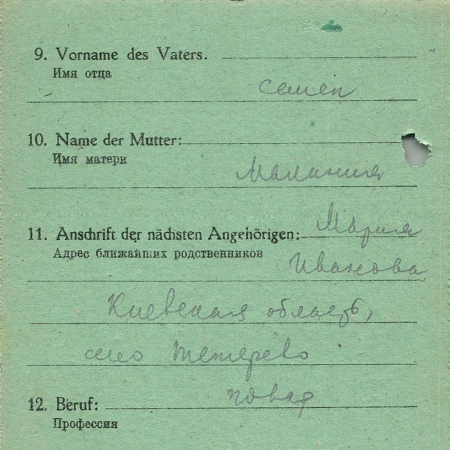 9. Vorname des Vaters.
Имя отца
семен
10. Name der Mutter:
Имя матери
Мелания
11. Anschrift der nächsten Angehörigen: Мария
Адрес ближайших родственников
Иванова
Киевская область,
село Тетерево
12. Beruf: повар
Профессия